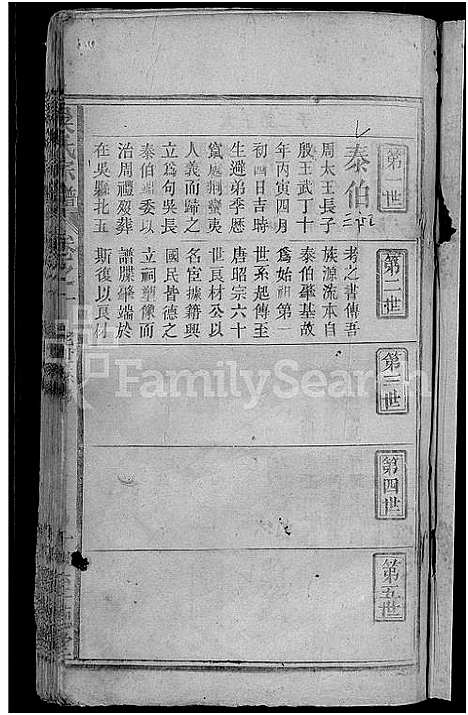 第一世
泰伯
周太王長子
殷王武丁十
年丙寅四月
初四日吉時
生避弟季歷
竄處荊蠻夷
人義而歸之
立為句吳長
泰伯端委以
治周禮歿葬
在吳縣北五
第二世
考之書傳吾
族源流本自
泰伯肇基故
為始祖第一
世系起傳至
唐昭宗六十
世良材公以
名宦據籍興
國民皆德之
立祠塑像而
譜牒肇端於
斯復以良材
第三世
第四世
第五世
吳氏宗譜
FamilySearch